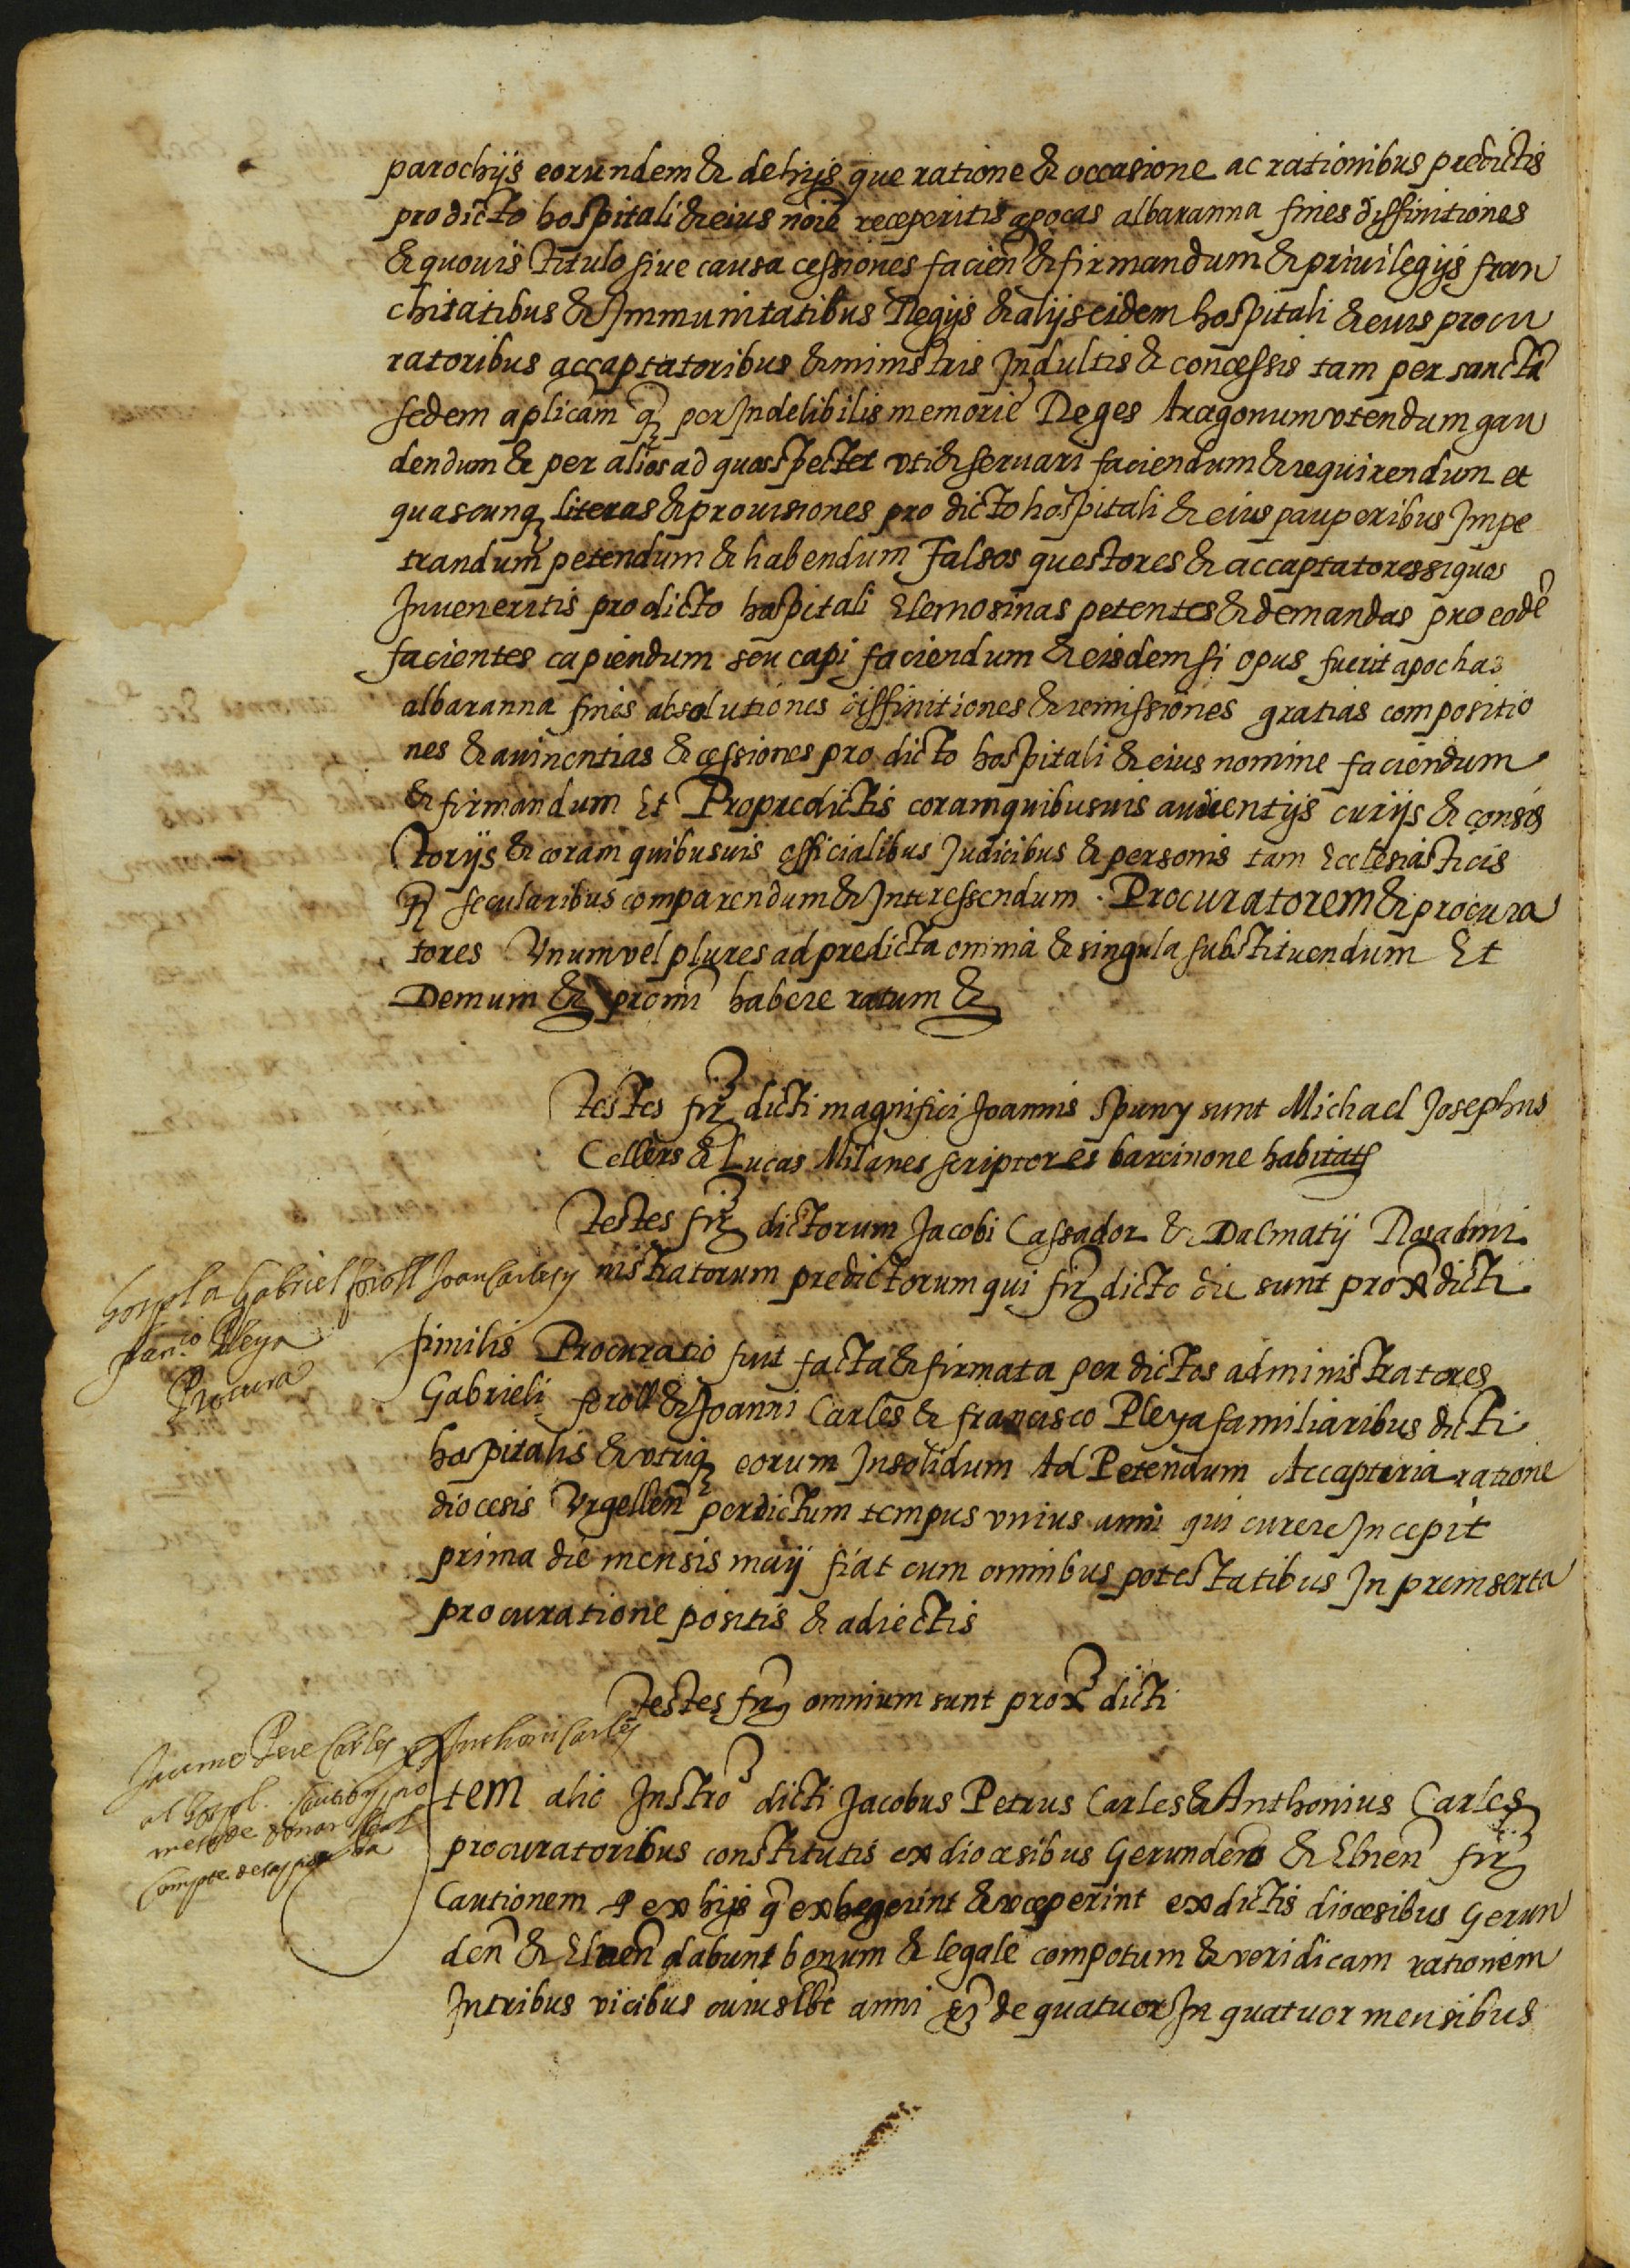 parochijs eorundem & de hijs que ratione & occasione ac rationibus predictis
pro dicto hospitali & eius noiē receperitis apocas albaranna fines diffinitiones
& quovis titulo sive causa cessiones facien̄ & firmandum & privilegijs fran
chitatibus & Immunitatibus Regijs & alijs eidem hospitali & eius procu
ratoribus accaptatoribus & ministris Indultis & concessis tam per sanctā
sedem aplicam q̄ per Indelibilis memorie Reges Aragonum utendum gau
dendum & per alios ad quos spectet uti & servari faciendum & requirendum et
quascunq literas & provisiones pro dicto hospitali & eius pauperibus Impe
trandum petendum & habendum Falsos questores & accaptatores siquos
Inveneritis pro dicto hospitali Elemosinas petentes & demandas pro eodē
facientes capiendum seu capi faciendum & eisdem si opus fuerit apochas
albaranna fines absolutiones diffinitiones & remissiones gratias compositio
nes & avinentias & cessiones pro dicto hospitali & eius nomine faciendum
& firmandum Et Pro predictis coram quibusvis audientijs curijs & consis
torijs & coram quibusvis officialibus Judicibus & personis tam Ecclesiasticis
q̄ secularibus comparendum & Interessendum. Procuratorem & procura
tores Unum vel plures ad predicta omnia & singula substituendum Et
Demum & promī habere ratum &
Testes fir̄ dicti magnifici Joannis Spuny sunt Michael Josephus
Cellers & Lucas Milanes scriptores barcinone habitat̄
Testes fir̄ dictorum Jacobi Cassador & Dalmatij Ros admi
nistratorum predictorum qui fir̄ dicto die sunt prox̄ dicti
hospl a Gabriel feroll Joan Carles y
Fran.co Pleya
Procura
similis Procuratio fuit facta & firmata per dictos administratores
Gabrieli feroll & Joanni Carles & francisco Pleya familiaribus dicti
hospitalis & utriq eorum Insolidum Ad Petendum Accapteria ratione
diocesis Urgellen̄ per dictum tempus unius anni qui curere Incepit
prima die mensis maij fiat cum omnibus potestatibus In preinserta
procuratione positis & adiectis
Testes fir̄ omnium sunt prox̄ dicti
Jaume Pere Carles y Anthoni Carles
al hospl. cautio y pro
mesa de donar leal
compte
Item alio Instro dicti Jacobus Petrus Carles & Anthonius Carles
procuratoribus constitutis ex diocesibus Gerunden̄ & Elnen̄ fir̄
Cautionem q ex hijs q̄ exhegerint & receperint ex dictis diocesibus Gerun
den̄ & Elnen̄ dabunt bonum & legale compotum & veridicam rationem
In tribus vicibus cuiuslbt anni de quatuor In quatuor mensibus